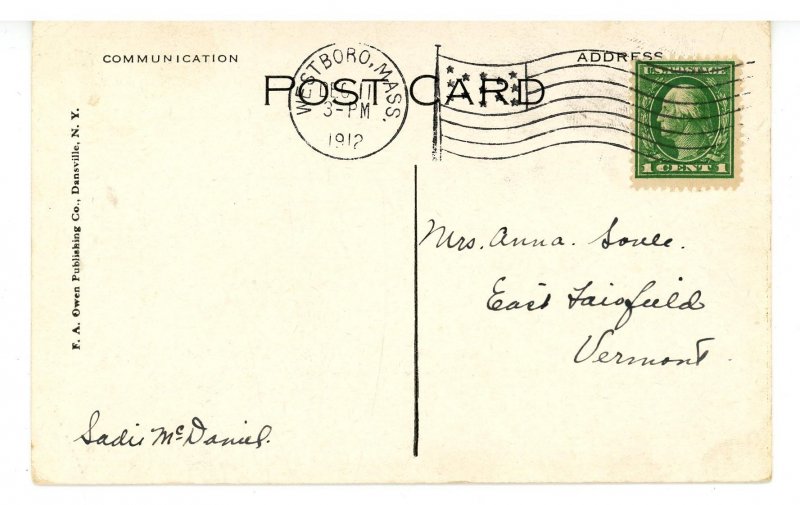 COMMUNICATION
ADDRESS
POST CARD
WESTBORO, MASS.
DEC 11
3-PM
1912
U.S. POSTAGE
1 CENT 1
F. A. Owen Publishing Co., Dansville, N. Y.
Mrs. Anna. Soule.
East Fairfield
Vermont.
Sadie McDaniel.